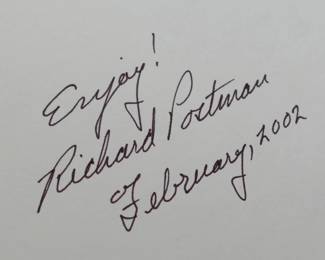 Enjoy!
Richard Postman
February, 2002